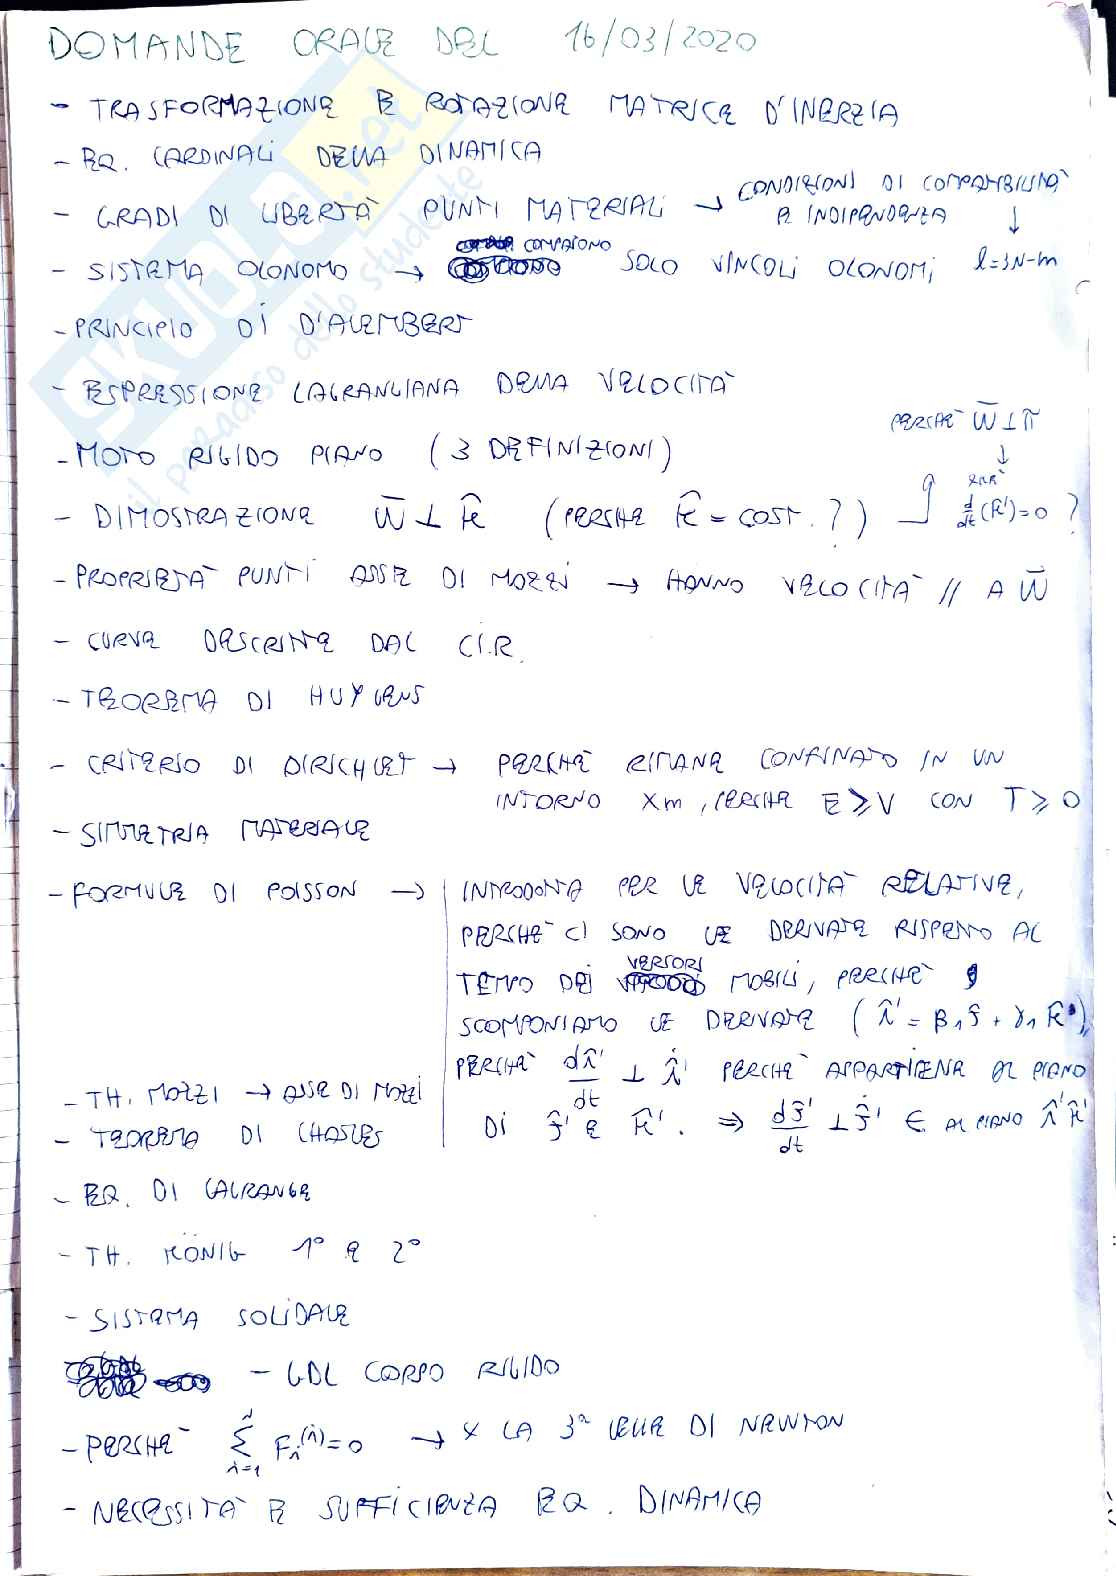 DOMANDE ORALE DEL 16/03/2020
- TRASFORMAZIONE E ROTAZIONE MATRICE D'INERZIA
- EQ. CARDINALI DELLA DINAMICA
- GRADI DI LIBERTÀ PUNTI MATERIALI → CONDIZIONI DI COMPATIBILITÀ
E INDIPENDENZA
↓
l=3N-m
- SISTEMA OLONOMO → COMPAIONO SOLO VINCOLI OLONOMI
- PRINCIPIO DI D'ALEMBERT
- ESPRESSIONE LAGRANGIANA DELLA VELOCITÀ
- MOTO RIGIDO PIANO (3 DEFINIZIONI)
PERCHÈ W̅ ⊥ π
↓
- DIMOSTRAZIONE W̅ ⊥ K̂ (PERCHÈ K̂ = COST. ?)
d/dt (K̂') = 0 ?
- PROPRIETÀ PUNTI ASSE DI MOZZI → HANNO VELOCITÀ // A W̅
- CURVE DESCRITTE DAL C.I.R.
- TEOREMA DI HUYGENS
- CRITERIO DI DIRICHLET → PERCHÈ RIMANE CONFINATO IN UN
INTORNO Xm, PERCHÈ E ⩾ V CON T ⩾ 0
- SIMMETRIA MATERIALE
- FORMULE DI POISSON → INTRODOTTA PER LE VELOCITÀ RELATIVE,
PERCHÈ CI SONO LE DERIVATE RISPETTO AL
TEMPO DEI VERSORI MOBILI, PERCHÈ
SCOMPONIAMO LE DERIVATE (î' = β₁ĵ + γ₁K̂),
PERCHÈ dî'/dt ⊥ î' PERCHÈ APPARTIENE AL PIANO
DI ĵ' E K̂'. ⇒ dĵ'/dt ⊥ ĵ' ∈ AL PIANO î'K̂'
- TH. MOZZI → ASSE DI MOZZI
- TEOREMA DI CHASLES
- EQ. DI LAGRANGE
- TH. KÖNIG 1° E 2°
- SISTEMA SOLIDALE
- GDL CORPO RIGIDO
- PERCHÈ Σ i=1 Fi⁽ⁱ⁾ = 0 → X LA 3ª LEGGE DI NEWTON
- NECESSITÀ E SUFFICIENZA EQ. DINAMICA
SKUOLA.net
il paradiso dello studente